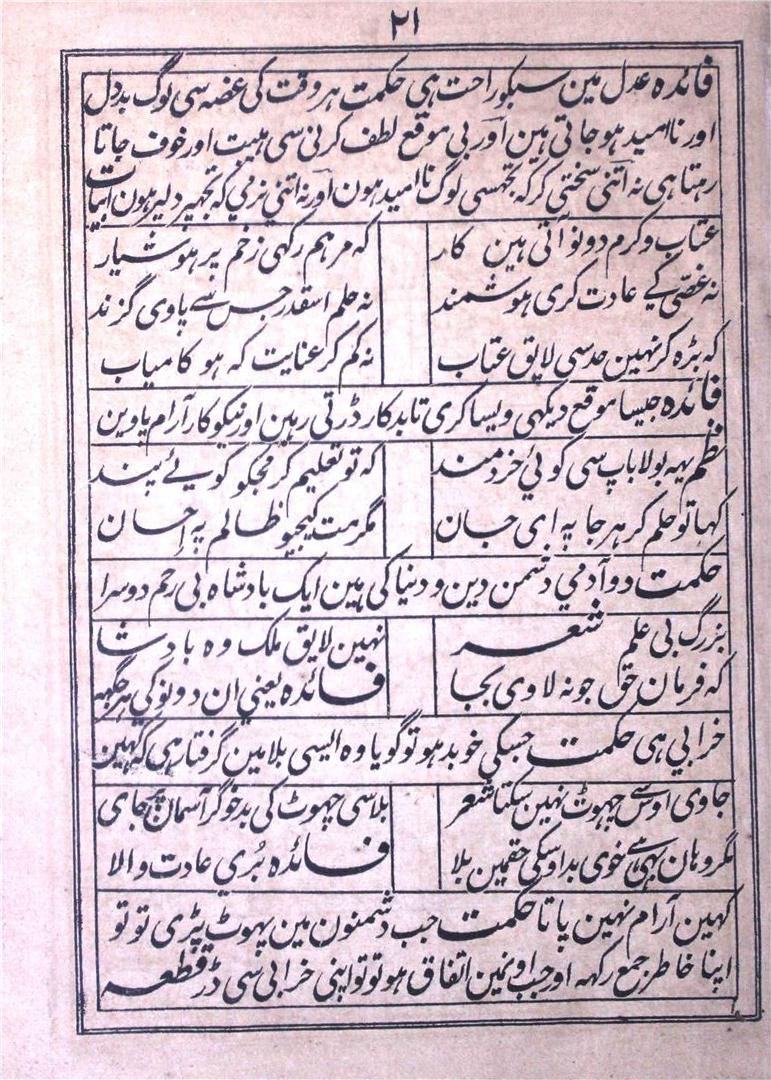 ۲۱
فائدہ عدل مین سبکو راحت ہی حکمت ہر وقت کی غصہ سی لوگ بددل
اور ناامید ہو جاتی ہین اور بی موقع لطف کرنی سی ہیبت اور خوف جاتا
رہتا ہی نہ اتنی سختی کر کہ تجہسی لوگ ناامید ہون اور نہ اتنی نرمی کہ تجہپر دلیر ہون ابیات
عتاب و کرم دونو آتی ہین کار کہ مرہم رکہی زخم پر ہوشیار
نہ غصّی کے عادت کری ہوشمند نہ حلم اسقدر جس سے پاوی گزند
کہ بڑہ کر نہین حد سی لایق عتاب نہ کم کر عنایت کہ ہو کامیاب
فائدہ جیسا موقع دیکہی ویسا کری تا بدکار ڈرتی رہین اور نیکوکار آرام پاوین
نظم یہہ بولا باپ سی کوئی خردمند کہ تو تعلیم کر مجکو کوئے پند
کہا تو حلم کر ہر جا پہ ای جان مگر مت کیجیو ظالم پہ احسان
حکمت دو آدمی دشمن دین و دنیا کی ہین ایک بادشاہ بی رحم دوسرا
بزرگ بی علم شعر نہین لایق ملک وہ بادشا
کہ فرمان حق جو نہ لاوی بجا فائدہ یعنی ان دونو کی ہر جگہہ
خرابی ہی حکمت جسکی خو بد ہو تو گویا وہ ایسی بلا مین گرفتار ہی کہ کہین
جاوی اوس سے چہوٹ نہین سکتا شعر بلا سی چہوٹ کی بدخو گر آسمان پہ جای
مگر وہان بہی ہے خوی بد اوسکی حقمین بلا فائدہ بُری عادت والا
کہین آرام نہین پاتا حکمت جب دشمنون مین پہوٹ پڑی تو تو
اپنا خاطر جمع رکہہ اور جب اونمین اتفاق ہو تو تو اپنی خرابی سی ڈر قطعہ